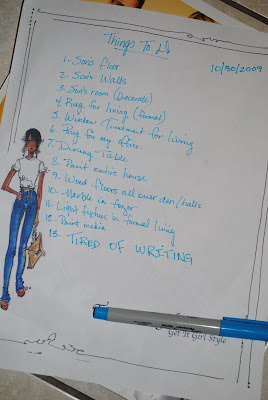 Things To Do
10/30/2009
1. Son's floor
2. Son's Walls
3. Son's room (Decorate)
4. Rug for living (formal)
5. Window Treatment for living
6. Rug for my office
7. Dining Table
8. Paint entire house
9. Wood floors all over den/halls
10. Marble in foyer
11. Light fixtures in formal living
12. Paint media
13. TIRED OF WRITING
Get It Girl Style